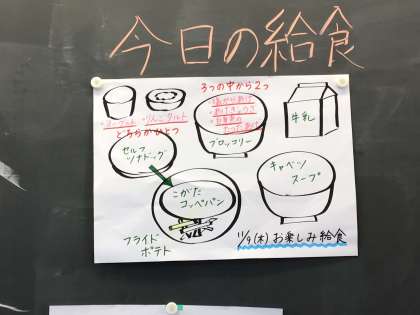 今日の給食
3つの中から2つ
・りんごタルト
どちらかひとつ
ブロッコリー
牛乳
セルフ
ツナドッグ
キャベツ
スープ
こがた
コッペパン
フライド
ポテト
11/9(木)お楽しみ給食